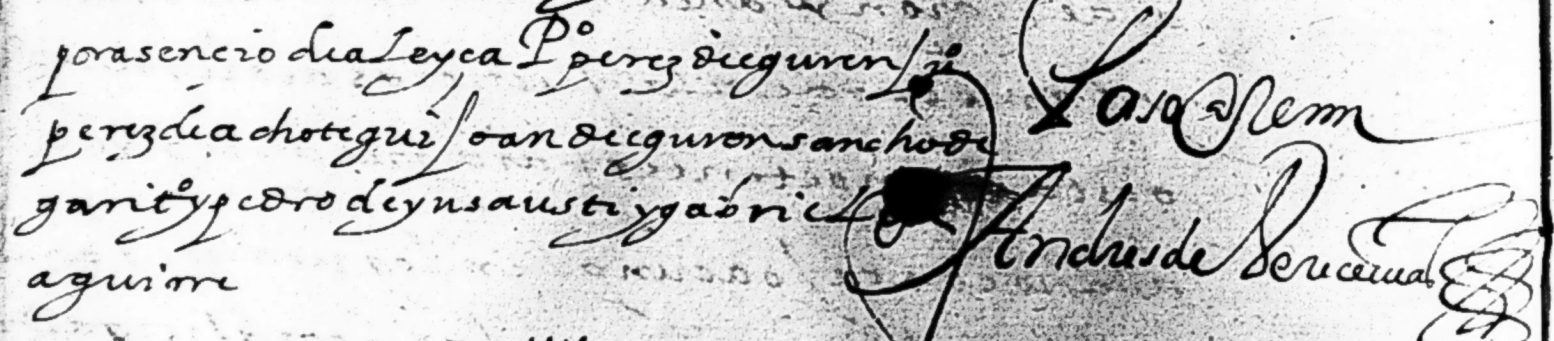 por asencio de aLeyça P.º perez de eguren Ju.º
perez de a chotegui Joan de eguren sancho de
garitº y pedro de ynsausti y gabriel de
aguirre
Andres de